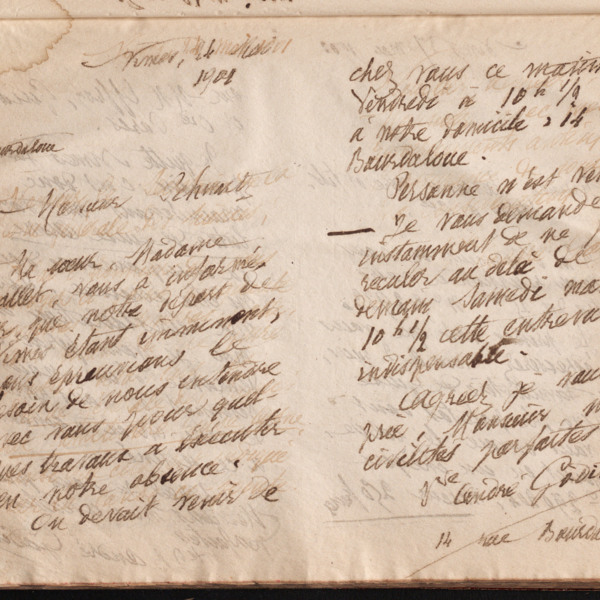 Nîmes, 24
1901
Bourdaloue
Monsieur Schmutz
Ma soeur, Madame
allet, vous a informé
que notre départ de
Nîmes étant imminent,
nous éprouvions le
besoin de nous entendre
avec vous pour quel-
ques travaux à exécuter
en notre absence.
On devait venir de
chez vous ce matin
Vendredi à 10 h 1/2
à notre domicile, 14
Bourdaloue.
Personne n'est
Je vous demande
instamment de ne
reculer au delà de
demain Samedi
10 h 1/2 cette
indispensable.
agréer je
prie, Monsieur
civilités parfaites
Vve André
14 rue